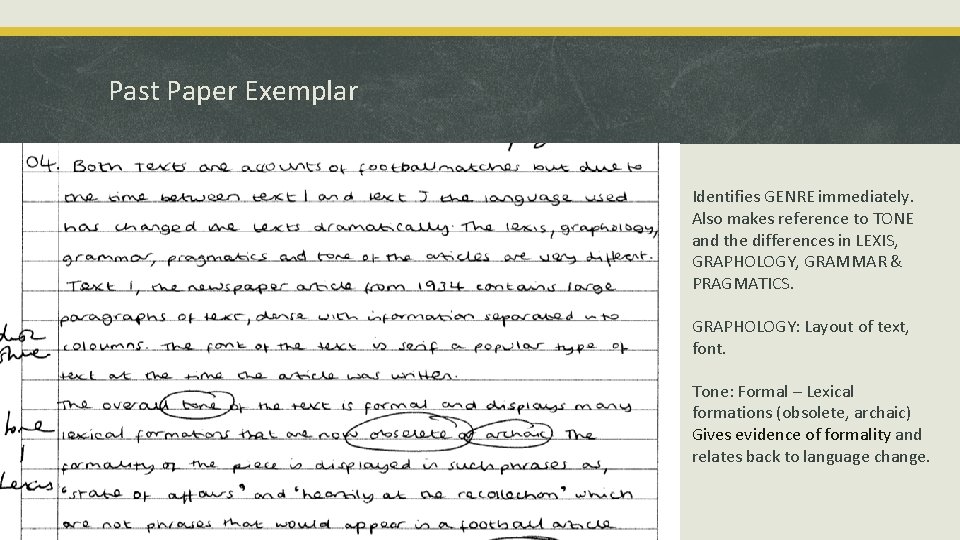 Past Paper Exemplar
04. Both Texts are accounts of football matches but due to
the time between text 1 and text J the language used
has changed the texts dramatically. The lexis, graphology,
grammar, pragmatics and tone of the articles are very different.
Text 1, the newspaper article from 1934 contains large
paragraphs of text, dense with information separated into
coloumns. The font of the text is serif a popular type of
text at the time the article was written.
The overall tone of the text is formal and displays many
lexical formations that are now obselete or archaic. The
formality of the piece is displayed in such phrases as,
'state of affairs' and 'heartily at the recollection' which
are not phrases that would appear in a football article
tone
Lexis
Identifies GENRE immediately.
Also makes reference to TONE
and the differences in LEXIS,
GRAPHOLOGY, GRAMMAR &
PRAGMATICS.
GRAPHOLOGY: Layout of text,
font.
Tone: Formal – Lexical
formations (obsolete, archaic)
Gives evidence of formality and
relates back to language change.